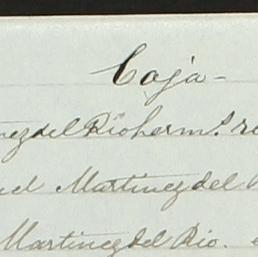 Caja-
ez del Rio herm.s
Martinez del
Martinez del Rio.